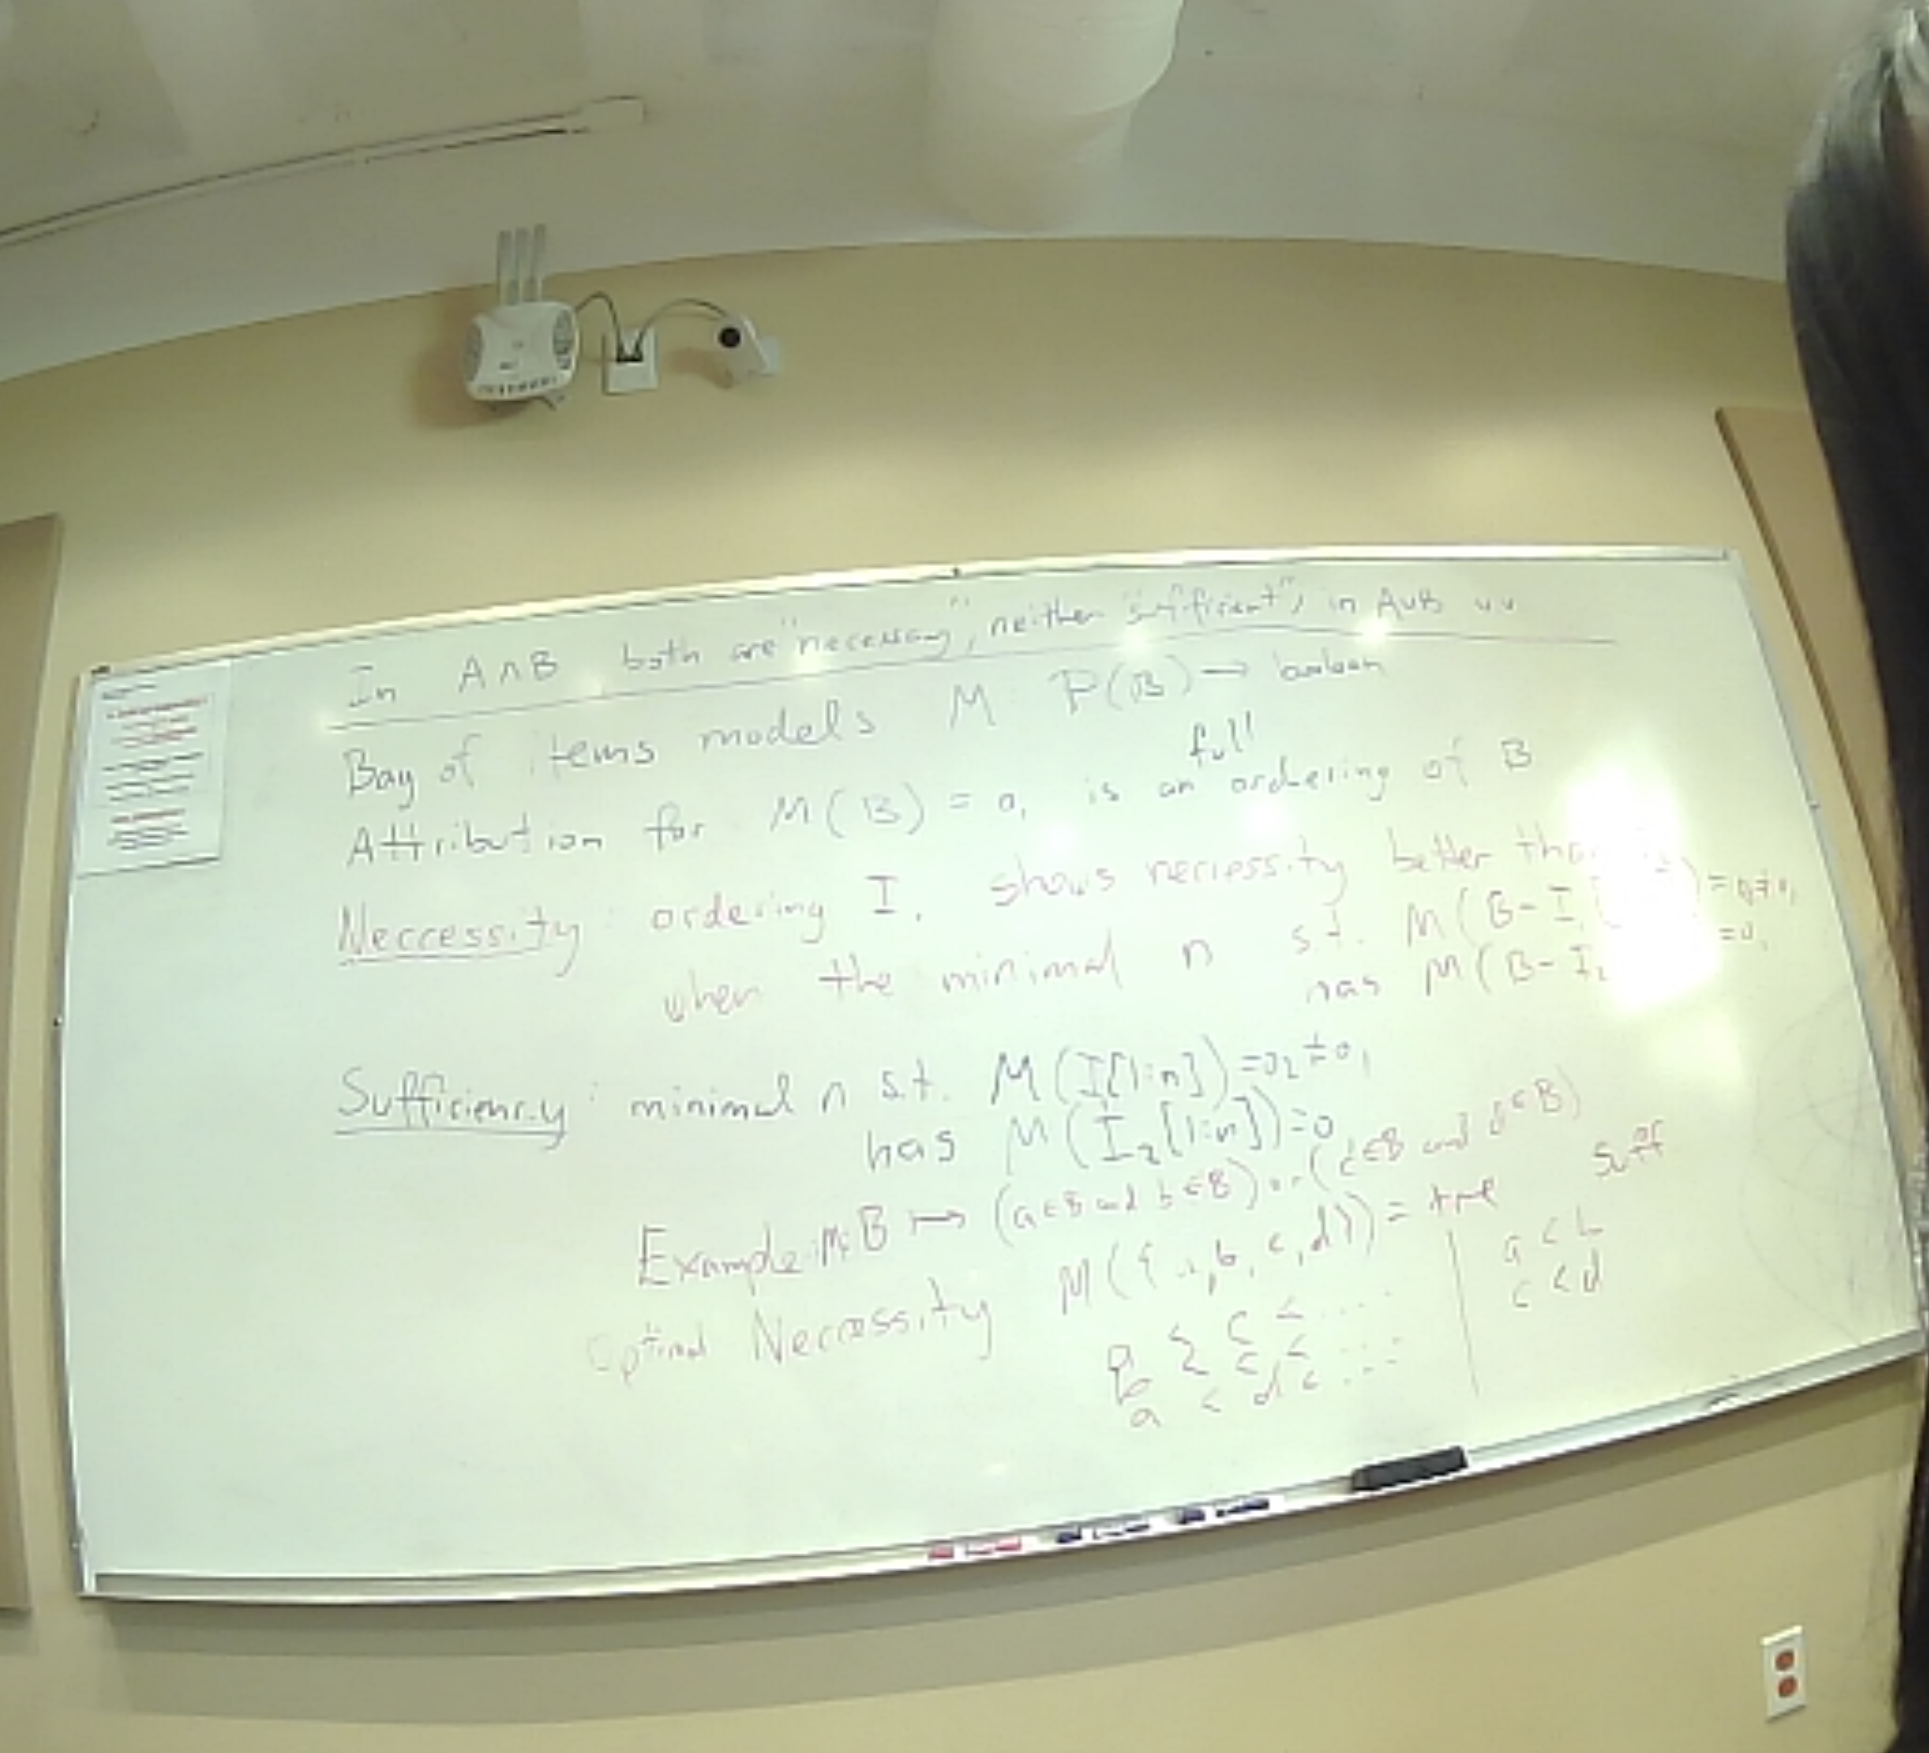 In A∧B both are "necessary", neither "sufficient", in A∨B vv
Bag of items models M: P(B) → boolean
full
Attribution for M(B) = o₁ is an ordering of B
Neccessity: ordering I₁ shows necessity better
when the minimal n s.t. M(B-I₁
has M(B-I₂ =o₁
Sufficiency: minimal n s.t. M(I[1:n])=o₂≠o₁
has M(I₂[1:n])=o
Example: M: B ↦ (a∈B and b∈B) or (c∈B and d∈B)
M({a,b,c,d})= true
Suff
Optimal Necessity
< c < ....
b < c < ...
a < d < ...
a < b
c < d